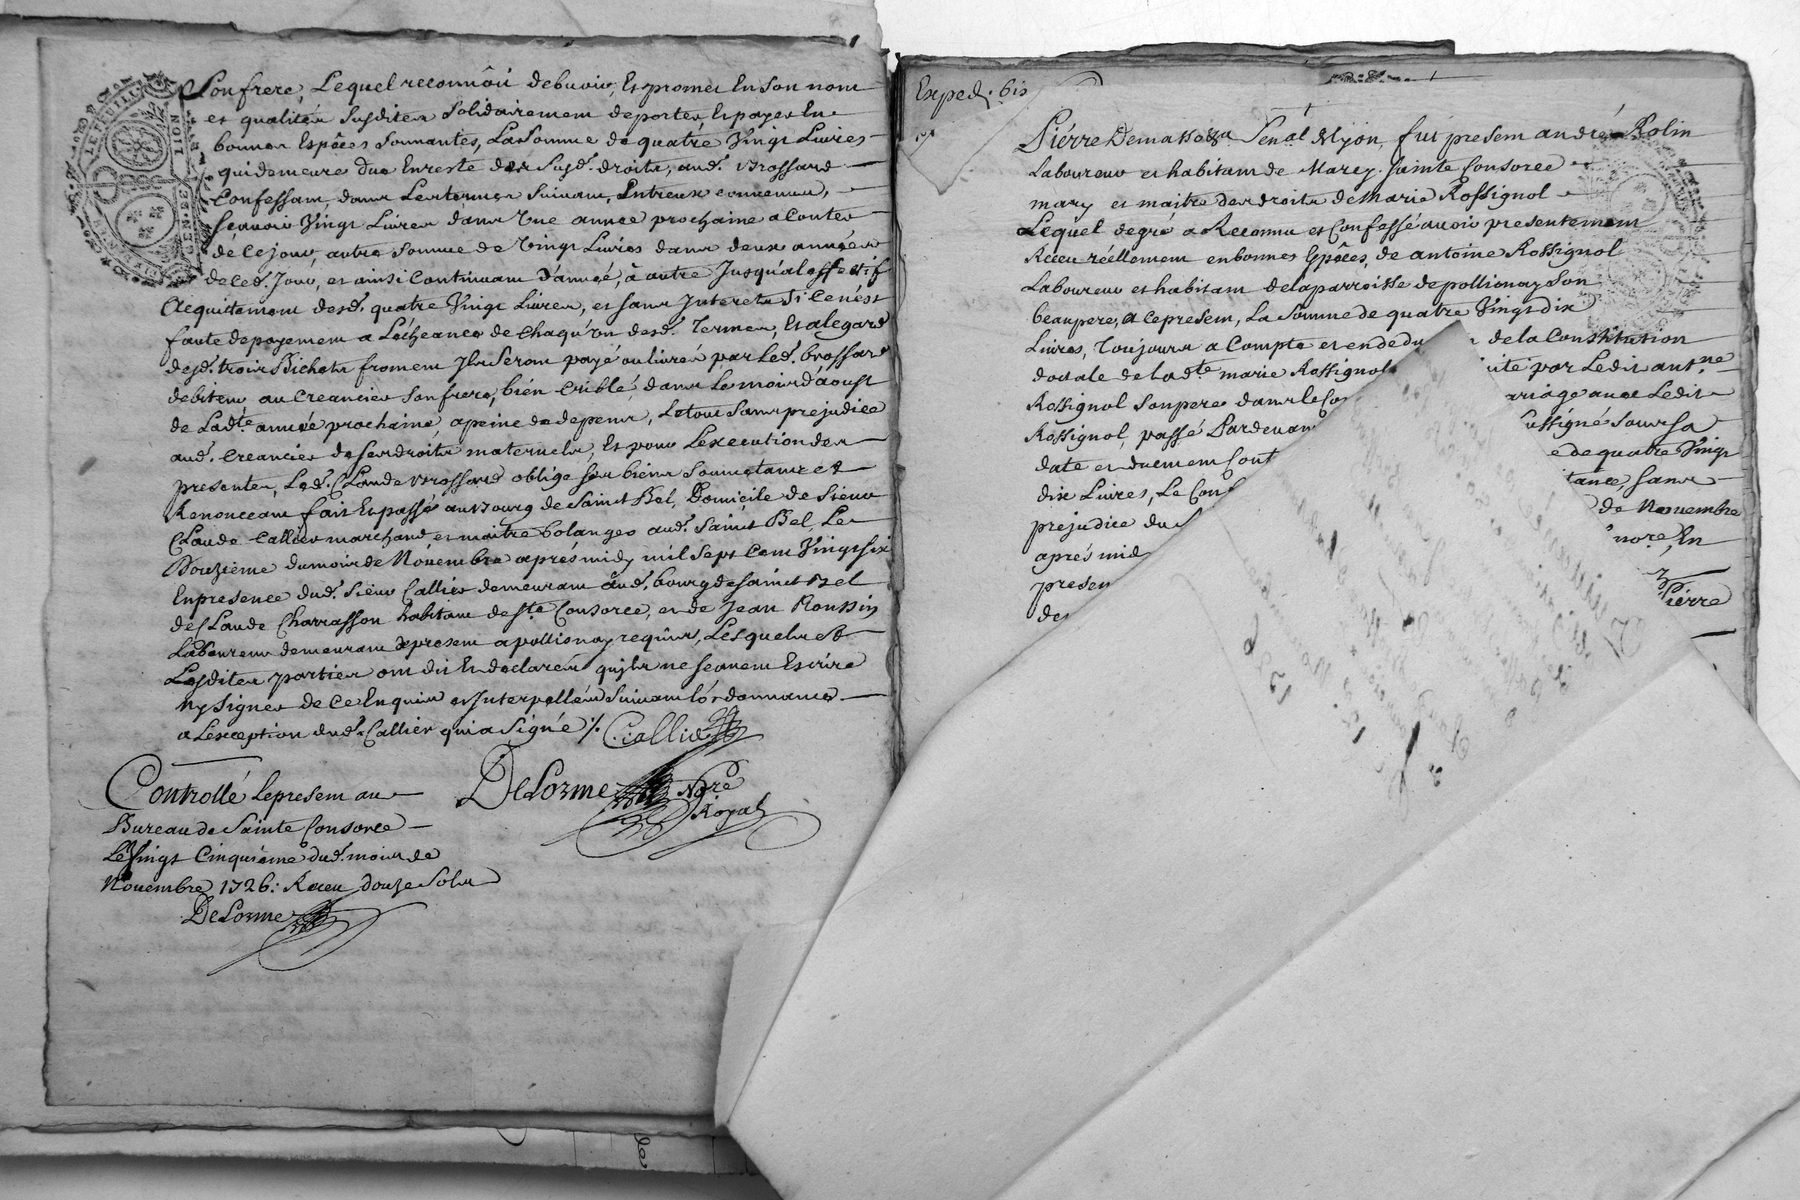 Son frere, Lequel reconnôit debuoir, Et promet En Son nom
et qualités Susdites Solidairement de porter Et payer En
bonnes Espêces Sonnantes, La Somme de quatre Vingt Livres
qui demeure due En reste des Susd. droits, aud. Brossard
Confessant, dans Les termes Suivans, Entreux convenus,
scauoir Vingt Livres dans Une année prochaine a Conter
dé ce jour, autre Somme de Vingt Livres dans deux années
de Ced. Jour, et ainsi Continuant d'année, à autre Jusqu'a Leffectif
Acquittement desd. quatre Vingt Livres, et Sans Interets Si Ce n'ést
faute de payement a Lécheance de Chaqu'un desd. Termes, Et alegard
desd. trois Bichets froment Ils Seront payé ou livrés par Led. brossard
debiteur au Creancier Son frere, bien Criblé, dans Le mois d'aoust
de Ladte année prochaine a peine de depens, Le tout Sans prejudice
aud. Creancier de Ses droits maternels, Et pour Lexecution des
presentes, Led. Claude Brossard oblige Ses biens Soumettant et
Renonceant fait Et passé au Bourg de Saint Bel, Domicile de Sieur
Claude Callier marchand et maitre bolanger aud. Saint Bel, Le
Douzieme du mois de Novembre aprés midy mil Sept Cent Vingt Six
En presence dud. Sieur Callier demeurant aud. bourg de Saint Bel
de Claude Charrasson habitant de Ste Consorce, et de Jean Roussin
Laboureur demeurant de present a pollionay requis, Lesquels et
Lesdites parties ont dit Et declaré qu'ils ne scauent Escrire
Ny Signer de Ce Enquis et Interpellés Suivant L'ordonnance
a Lexception dud. Callier qui a Signé %. C. iallier
Controllé Le present au
Bureau de Sainte Consorce
Le Vingt Cinquiéme dud. mois de
Novembre 1726: Receu douze Sols
DeLorme
DeLorme Nore
Royal
LYON
GEN.
Exped. bis
Piérre Demasso &a Senal Lyon, fut present andré Rolin
Laboureur et habitant de Marcy Sainte Consorce
mary et maitre des droits de Marie Rossignol
Lequel de gré a Reconnu et Confessé auoir presentement
Receu réellement en bonnes Espêces, de antoine Rossignol
Laboureur et habitant de la parroisse de pollionay Son
beaupere, a Ce present, La Somme de quatre Vingt dix
Livres, Toujours a Compte et en dedu de la Constitution
dotale de Ladte marie Rossignol ite par Ledit antne
Rossignol Son pere dans le Co ariage auec Ledit
Rossignol, passé Pardeuan ussigné Sous Sa
date et duement Cont e de quatre Vingt
dix Livres, Le Con tance, Sans
prejudice du de Novembre
aprés mid nore, En
presen
de Piérre